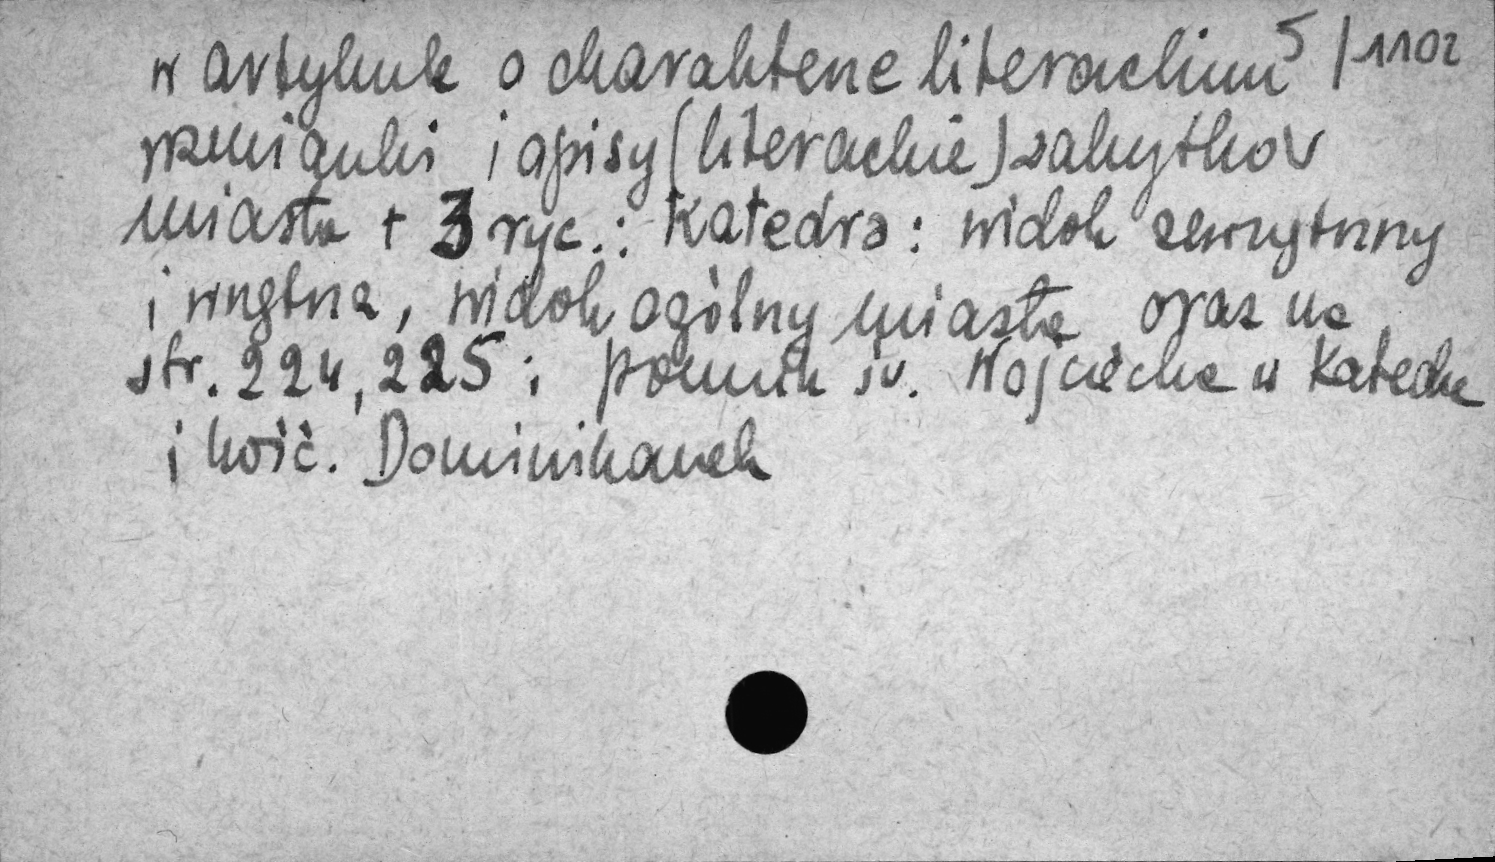 5/1102
w artykule o charakterze literackim
wzmianki i opisy (literackie) zabytków
miasta + 3 ryc.: Katedra: widok zewnętrzny
i wnętrze, widok ogólny miasta oraz na
str. 224, 225: pomnik św. Wojciecha w Katedrze
i kośc. Dominikanek